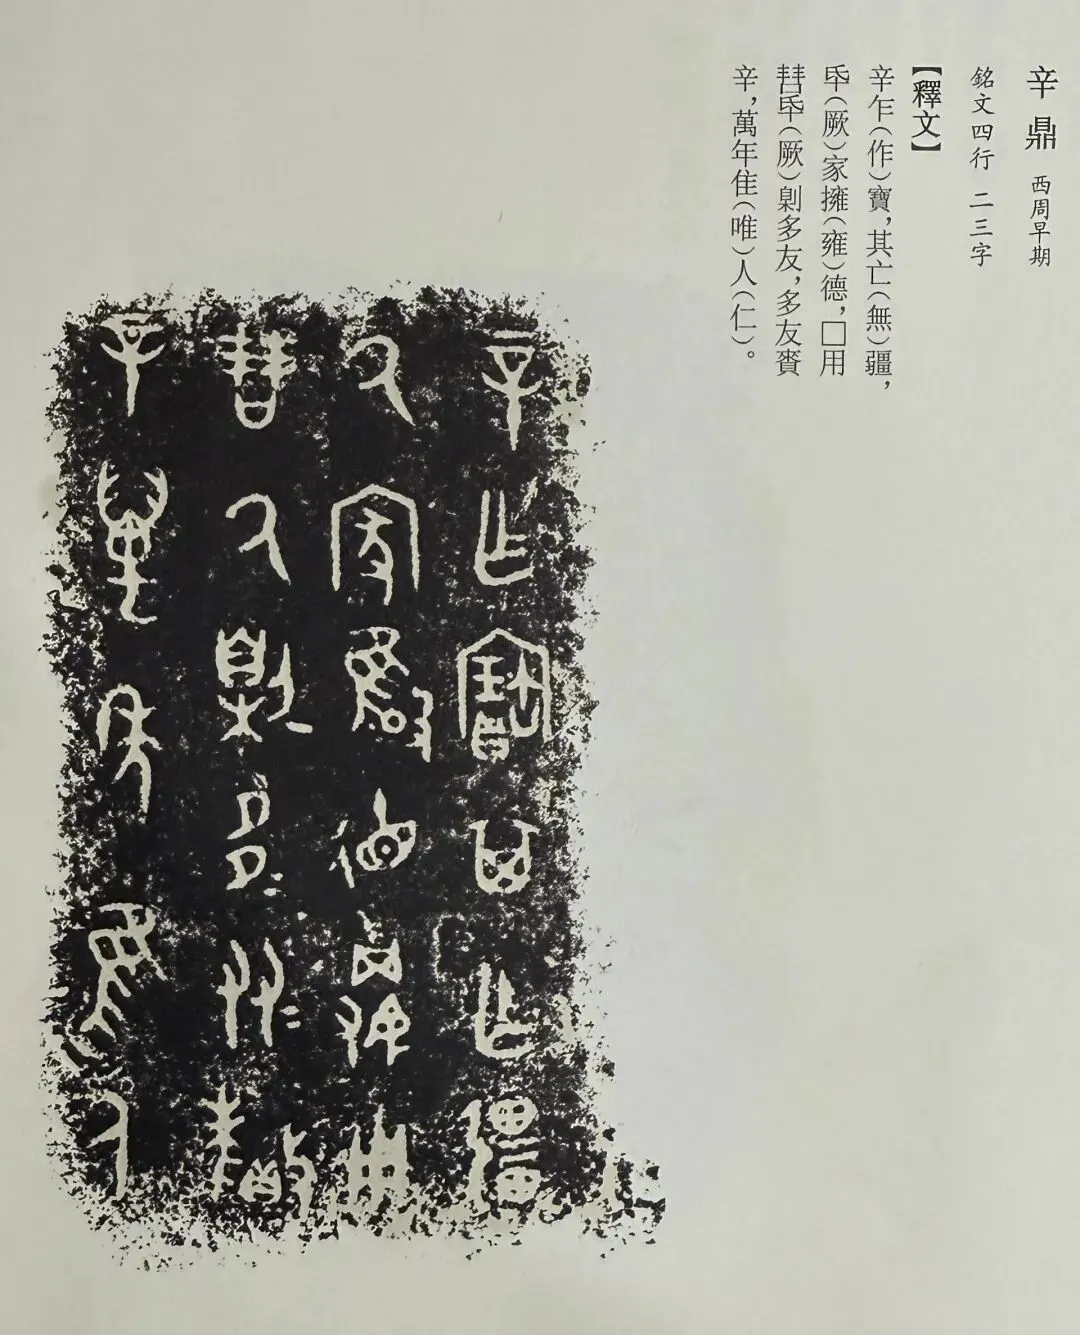 辛鼎 西周早期
銘文四行 二三字
【釋文】
辛乍（作）寶，其亡（無）疆，
氒（厥）家擁（雍）德，□用
𦎫氒（厥）剿多友，多友賚
辛，萬年隹（唯）人（仁）。